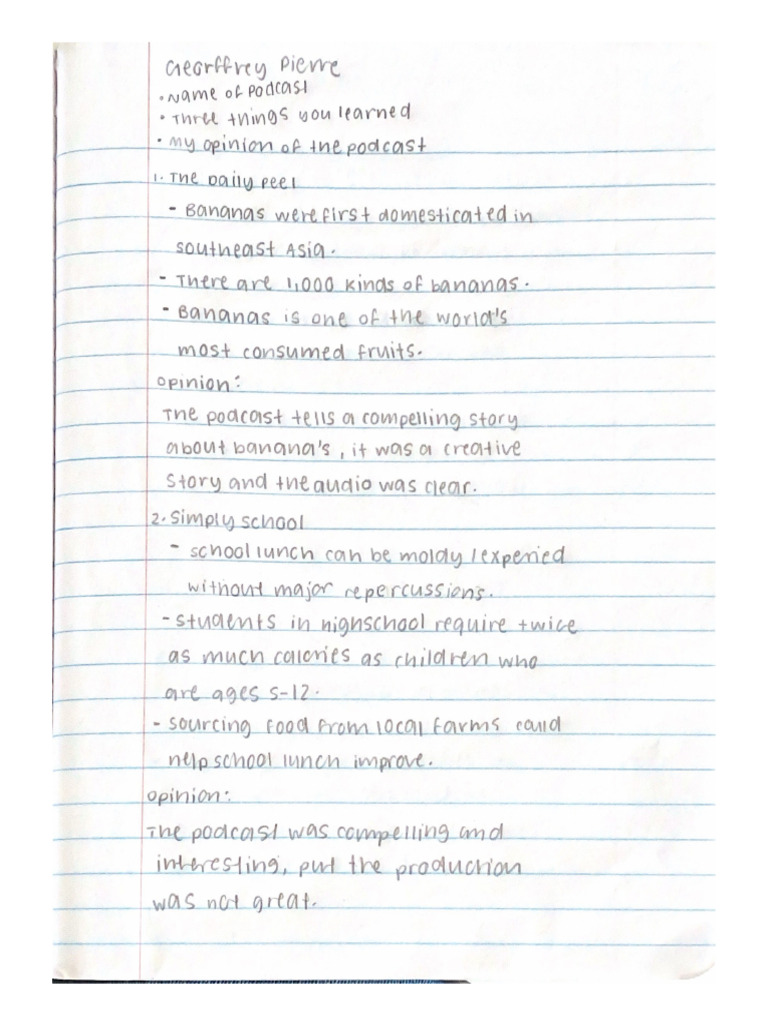 Georffrey Pierre
• Name of Podcast
• Three things you learned
• My opinion of the podcast
1. The Daily Peel
- Bananas were first domesticated in
southeast Asia.
- There are 1,000 kinds of bananas.
- Bananas is one of the world's
most consumed fruits.
Opinion:
The podcast tells a compelling story
about banana's, it was a creative
story and the audio was clear.
2. Simply school
- school lunch can be moldy/experied
without major repercussions.
- students in highschool require twice
as much calories as children who
are ages 5-12.
- sourcing food from local farms could
help school lunch improve.
Opinion:
The podcast was compelling and
interesting, put the production
was not great.